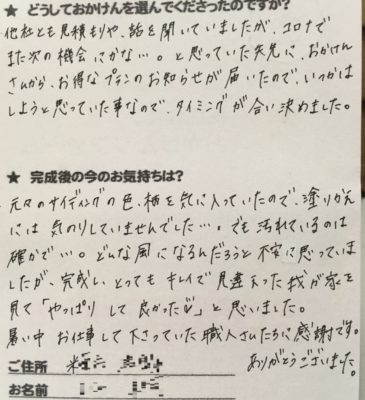 ★ どうしておかけんを選んでくださったのですか?
他社とも見積もりや、話を聞いていましたが、コロナで
また次の機会にかな…。と思っていた矢先に、おかけん
さんから、お得なプランのお知らせが届いたので、いつかは
しようと思っていた事なので、タイミングが合い決めました。
★ 完成後の今のお気持ちは?
元々のサイディングの色、柄を気に入っていたので、塗りかえ
には 気のりしていませんでした…。でも汚れているのは
確かで…。どんな風になるんだろうと不安に思っていま
したが、完成し、とってもキレイで見違えった我が家を
見て「やっぱりして良かった♡」と思いました。
暑い中 お仕事して下さっていた職人さんたちに感謝です。
ありがとうございました。
ご住所
お名前